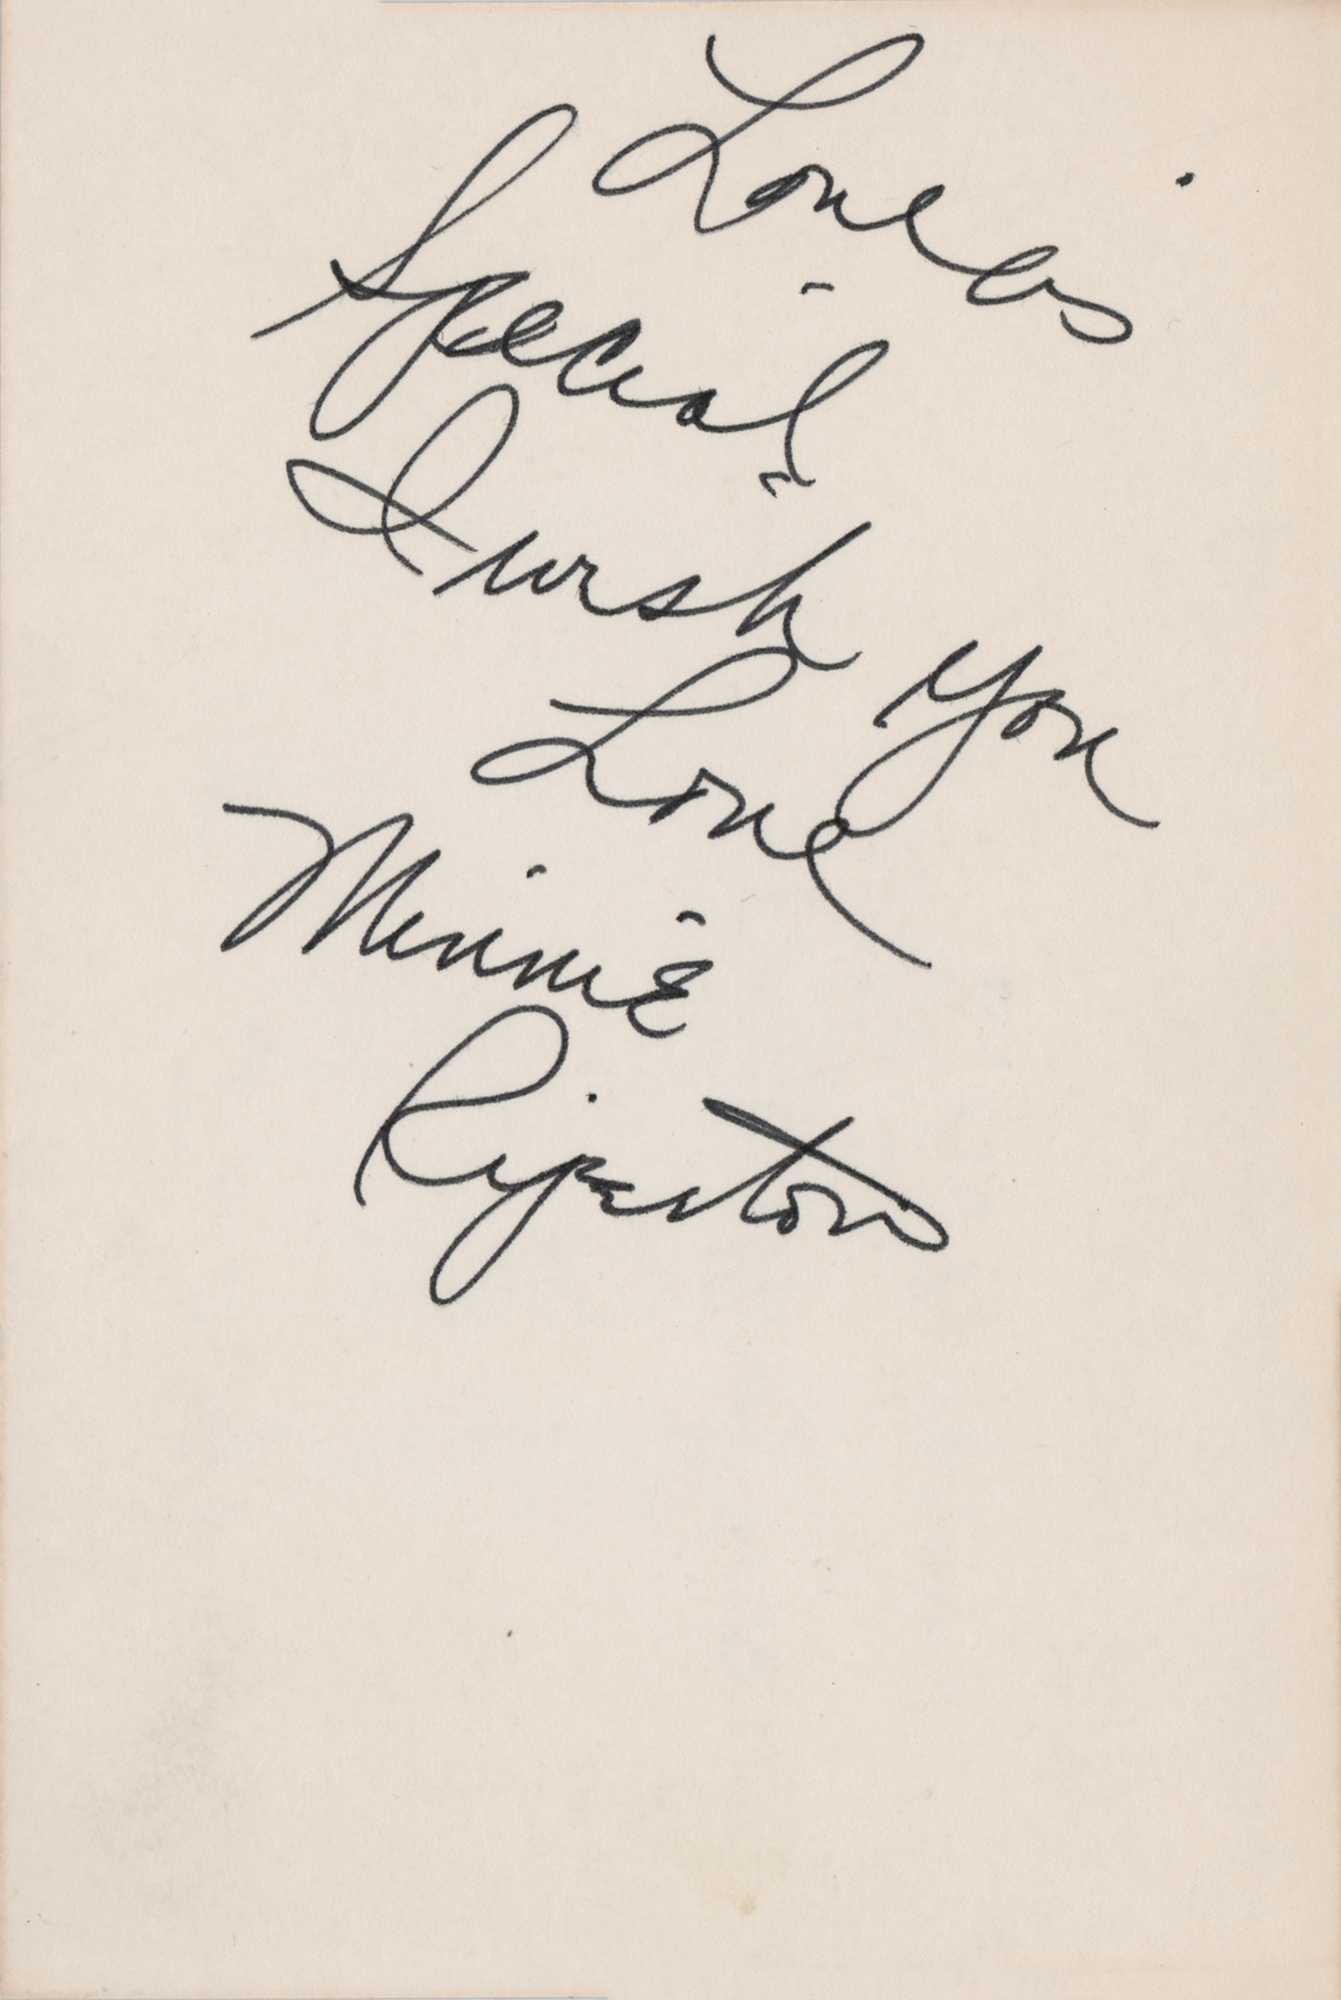 Love is
Special -
I wish You
Love
Minnie
Riperton